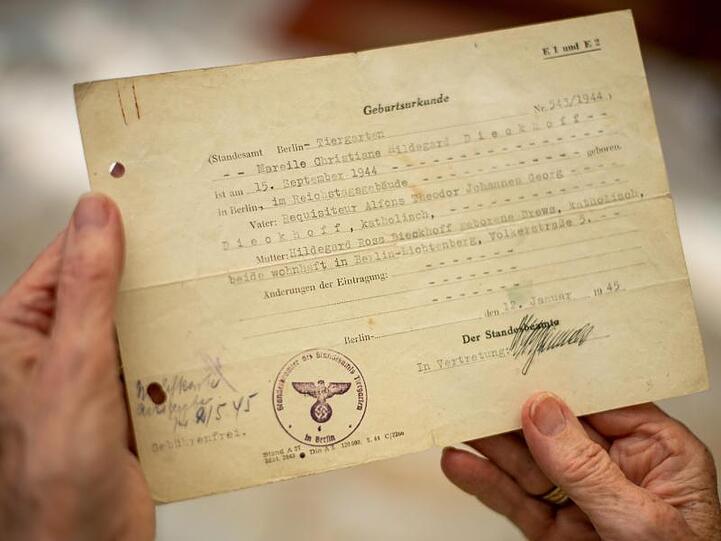 E 1 und E 2
Geburtsurkunde
Nr. 543/1944.)
(Standesamt Berlin- Tiergarten
-- Mareile Christiane Hildegard Dieckhoff --
ist am 15. September 1944 geboren.
in Berlin, im Reichstagsgebäude
Vater: Requisiteur Alfons Theodor Johannes Georg
Dieckhoff, katholisch,
Mutter: Hildegard Rosa Dieckhoff geborene Drews, katholisch,
beide wohnhaft in Berlin-Lichtenberg, Volkerstraße 5.
Änderungen der Eintragung:
Berlin- den 12. Januar 1945
Der Standesbeamte
In Vertretung:
2/5 45
Gebührenfrei.
Standesbeamter des Standesamts Tiergarten
4
in Berlin
Stand A 27
Din A 5